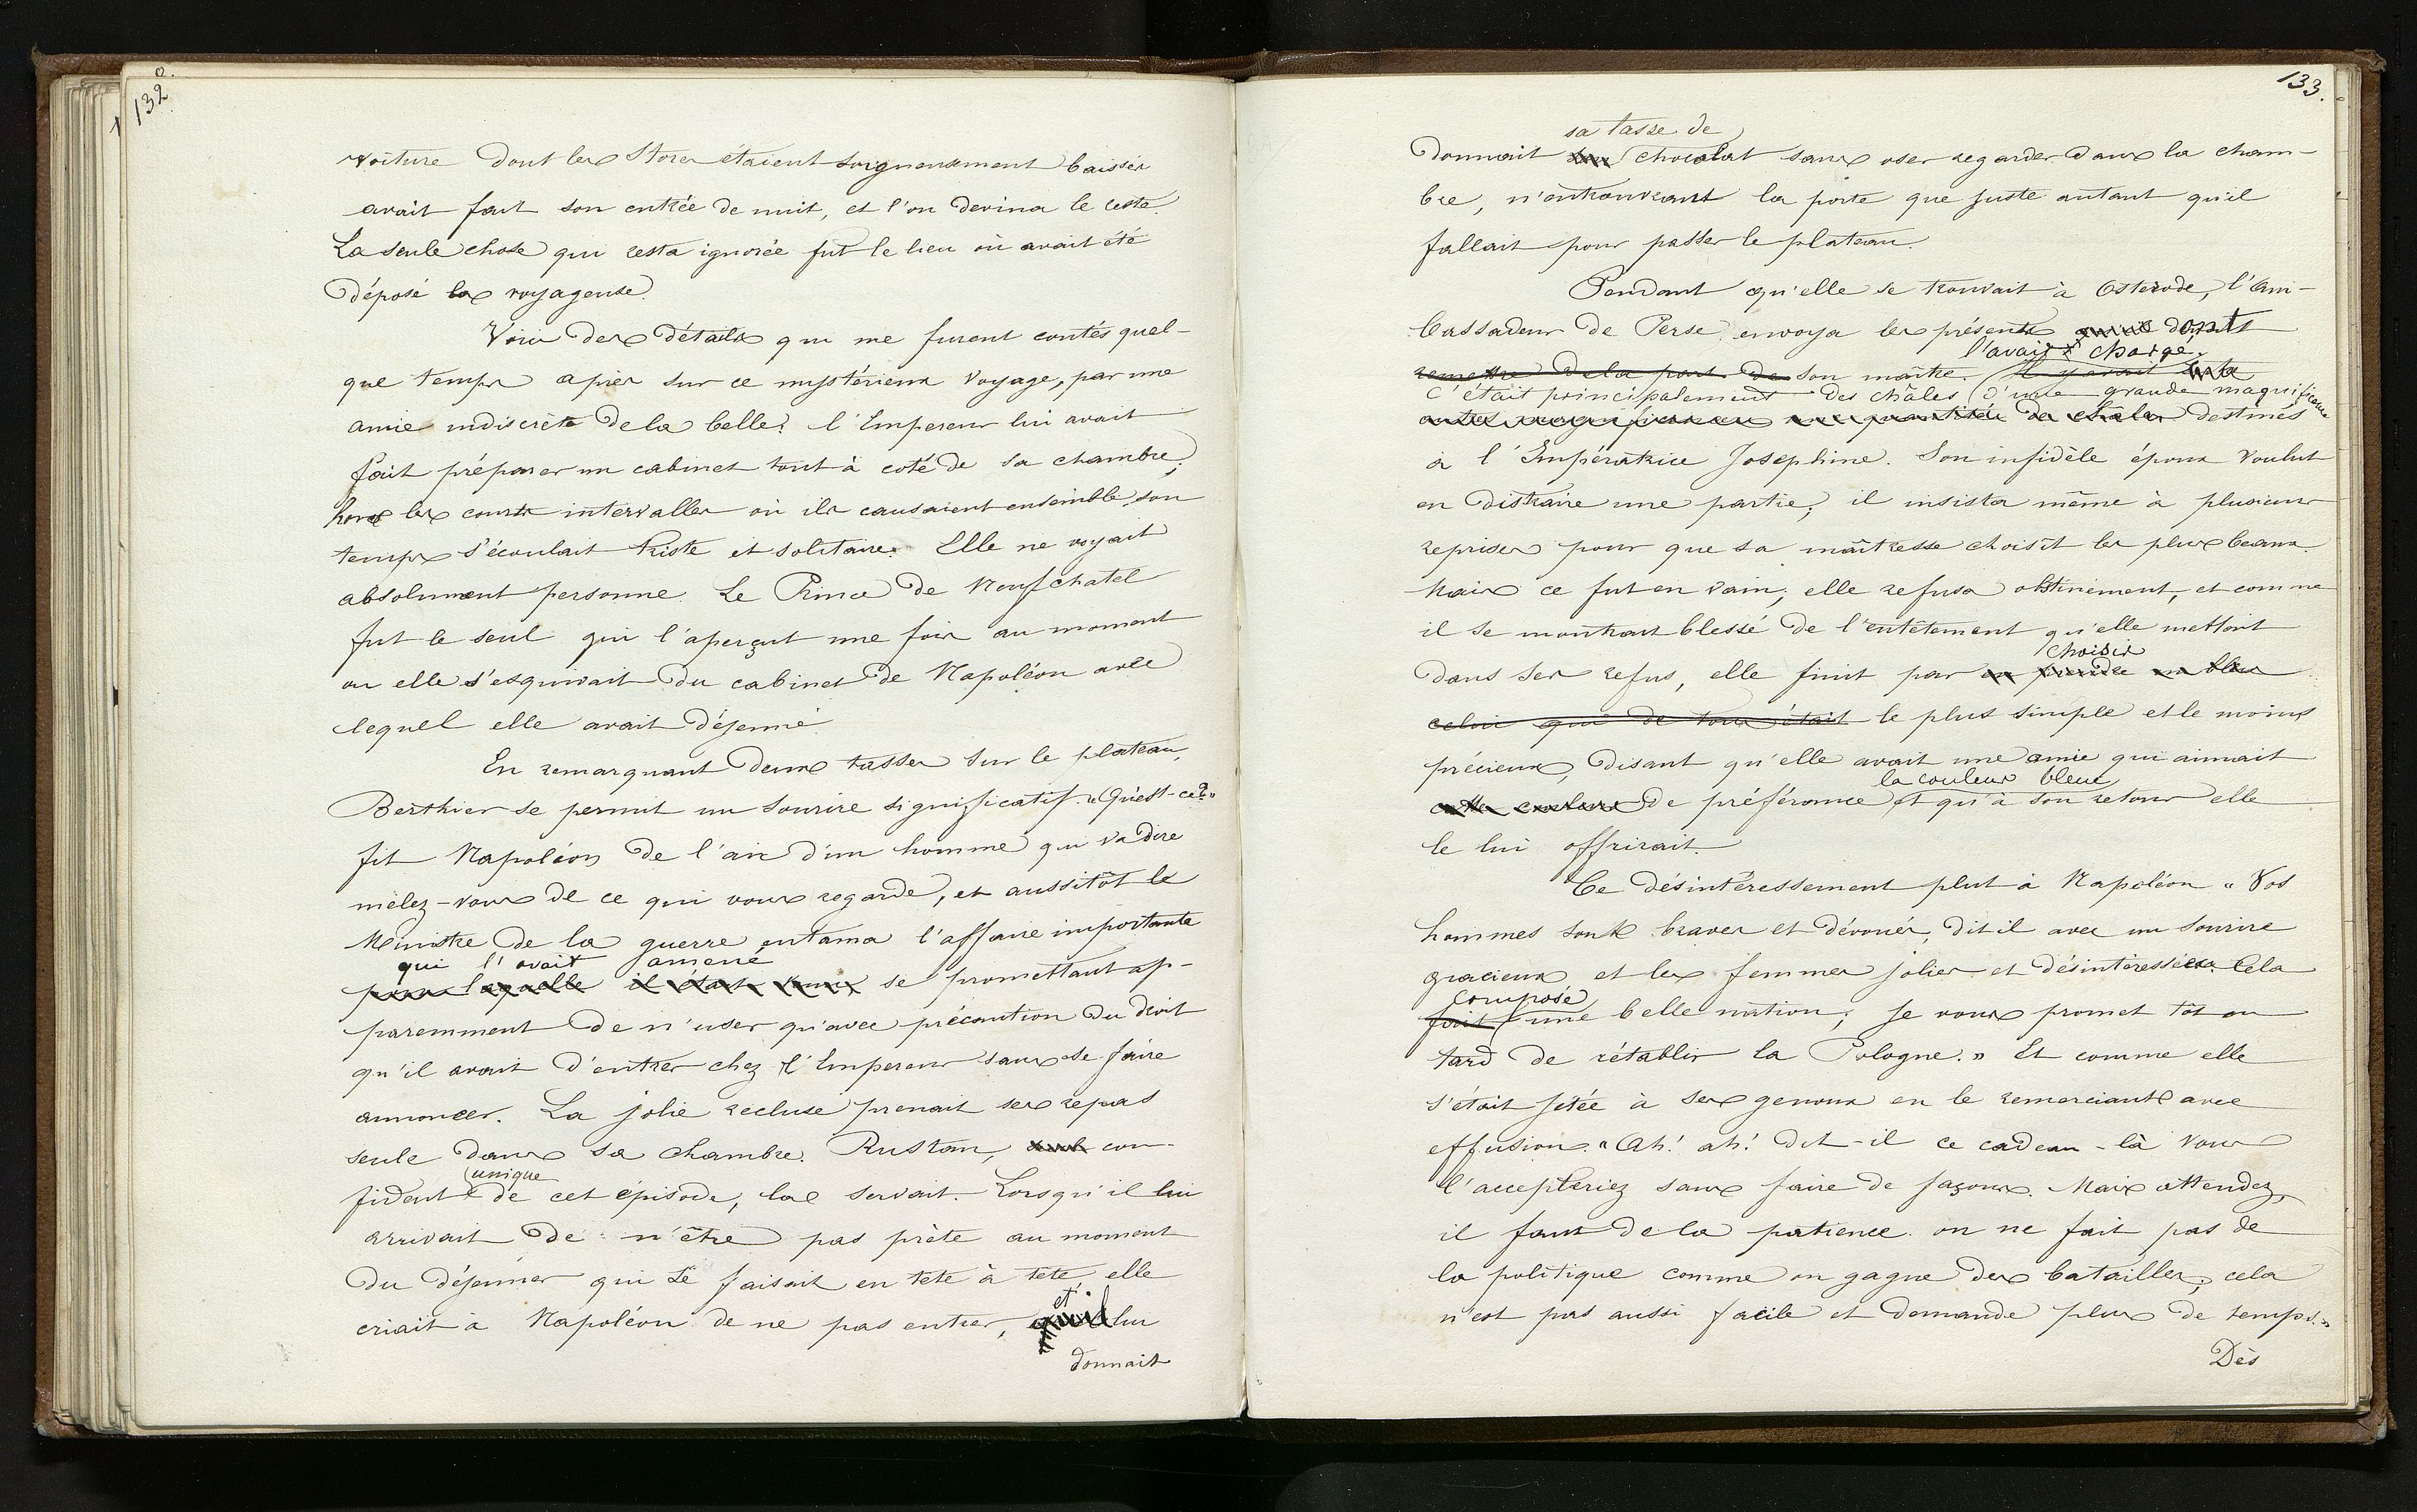 132.
voiture dont les stores étaient soigneusement baissés
avait fait son entrée de nuit, et l'on devina le reste.
La seule chose qui resta ignorée fut le lieu où avait été
déposé la voyageuse.
Voici des détails qui me furent contés quel-
que temps après sur ce mystérieux voyage, par une
amie indiscrète de la belle: l'Empereur lui avait
fait préparer un cabinet tout à coté de sa chambre;
hors les courts intervalles où ils causaient ensemble son
temps s'écoulait triste et solitaire. Elle ne voyait
absolument personne. Le Prince de Neufchatel
fut le seul qui l'aperçut une fois au moment
ou elle s'esquivait du cabinet de Napoléon avec
lequel elle avait déjeuné.
En remarquant deux tasses sur le plateau,
Berthier se permit un sourire significatif. "Qu'est-ce?"
fit Napoléon de l'air d'un homme qui va dire
mêlez-vous de ce qui vous regarde, et aussitôt le
Ministre de la guerre entama l'affaire importante
qui l'avait amené
pour laquelle il était venu, se promettant ap-
paremment de n'user qu'avec précaution du droit
qu'il avait d'entrer chez l'Empereur sans se faire
annoncer. La jolie recluse prenait ses repas
seule dans sa chambre. Rustan, seul con-
unique
fident de cet épisode, la servait. Lorsqu'il lui
arrivait de n'être pas prête au moment
du déjeuner qui se faisait en tete à tête, elle
et
criait à Napoléon de ne pas entrer, qu'il lui
donnait
133.
sa tasse de
donnait son chocolat sans oser regarder dans la cham-
bre, n'entrouvrant la porte que juste autant qu'il
fallait pour passer le plateau.
Pendant qu'elle se trouvait à Osterode, l'am-
bassadeur de Perse envoya les présents dont
l'avait chargé
remettre de la part de son maître. Il y avait
c'était principalement des châles d'une grande magnificence
autres magnificences une quantitée de châles destinés
à l'Impératrice Josephine. Son infidèle époux voulut
en distraire une partie; il insista même à plusieurs
reprises pour que sa maîtresse choisît les plus beaux.
Mais ce fut en vain; elle refusa obstinément, et comme
il se montrait blessé de l'entêtement qu'elle mettait
choisir
dans ses refus, elle finit par en prendre un bleu
celui qui de tous était le plus simple et le moins
précieux, disant qu'elle avait une amie qui aimait
la couleur bleue
cette couleur de préférence et qu'à son retour elle
le lui offrirait.
Ce désintéressement plut à Napoléon "Vos
hommes sont braves et dévoués, dit il avec un sourire
gracieux et les femmes jolies et désintéressées. Cela
compose
fait une belle nation; je vous promet tôt ou
tard de rétablir la Pologne." Et comme elle
s'était jetée à ses genoux en le remerciant avec
effusion. "Ah! ah! dit-il ce cadeau-là vous
l'accepteriez sans faire de façons. Mais attendez,
il faut de la patience. on ne fait pas de
la politique comme on gagne des batailles; cela
n'est pas aussi facile et demande plus de temps."
Dès